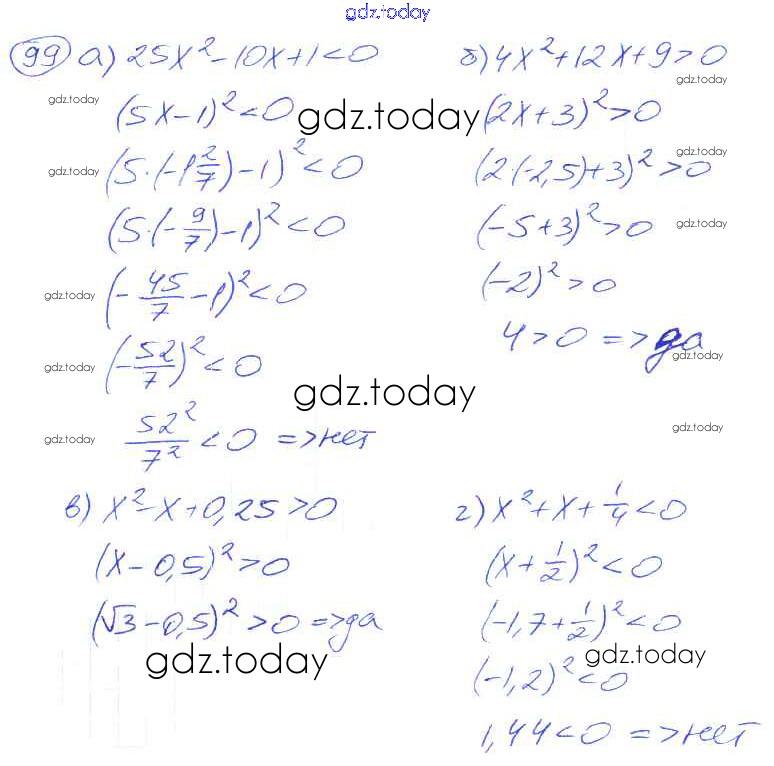 gdz.today
99 а) 25x² - 10x + 1 < 0
(5x - 1)² < 0
(5·(-1 2/7) - 1)² < 0
(5·(-9/7) - 1)² < 0
(-45/7 - 1)² < 0
(-52/7)² < 0
52²/7² < 0 => нет
б) 4x² + 12x + 9 > 0
(2x + 3)² > 0
(2(-2,5) + 3)² > 0
(-5 + 3)² > 0
(-2)² > 0
4 > 0 => да
в) x² - x + 0,25 > 0
(x - 0,5)² > 0
(√3 - 0,5)² > 0 => да
г) x² + x + 1/4 < 0
(x + 1/2)² < 0
(-1,7 + 1/2)² < 0
(-1,2)² < 0
1,44 < 0 => нет
gdz.today
gdz.today
gdz.today
gdz.today
gdz.today
gdz.today
gdz.today
gdz.today
gdz.today
gdz.today
gdz.today
gdz.today
gdz.today
gdz.today